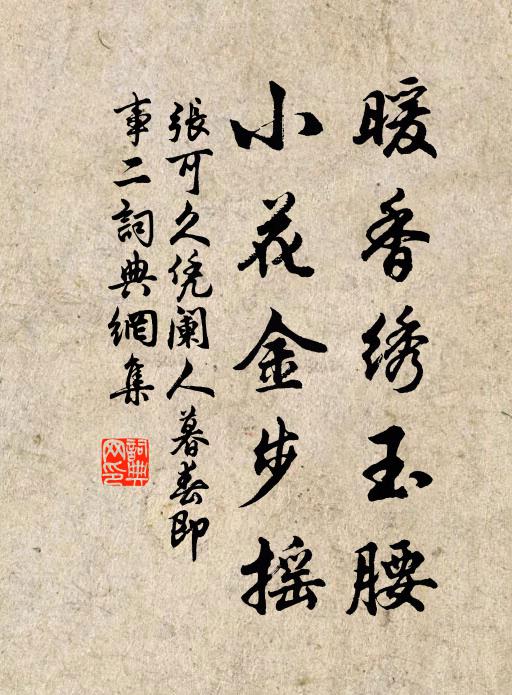 暖香绣玉腰
小花金步摇
張可久凭阑人暮春即
事二詞典網集
詞典
网印